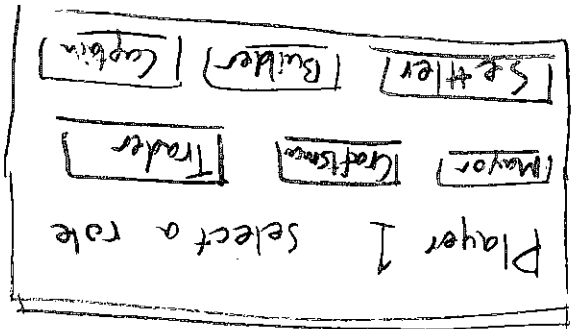 Player 1 select a role
Mayor Craftsman Trader
Settler Builder Captain